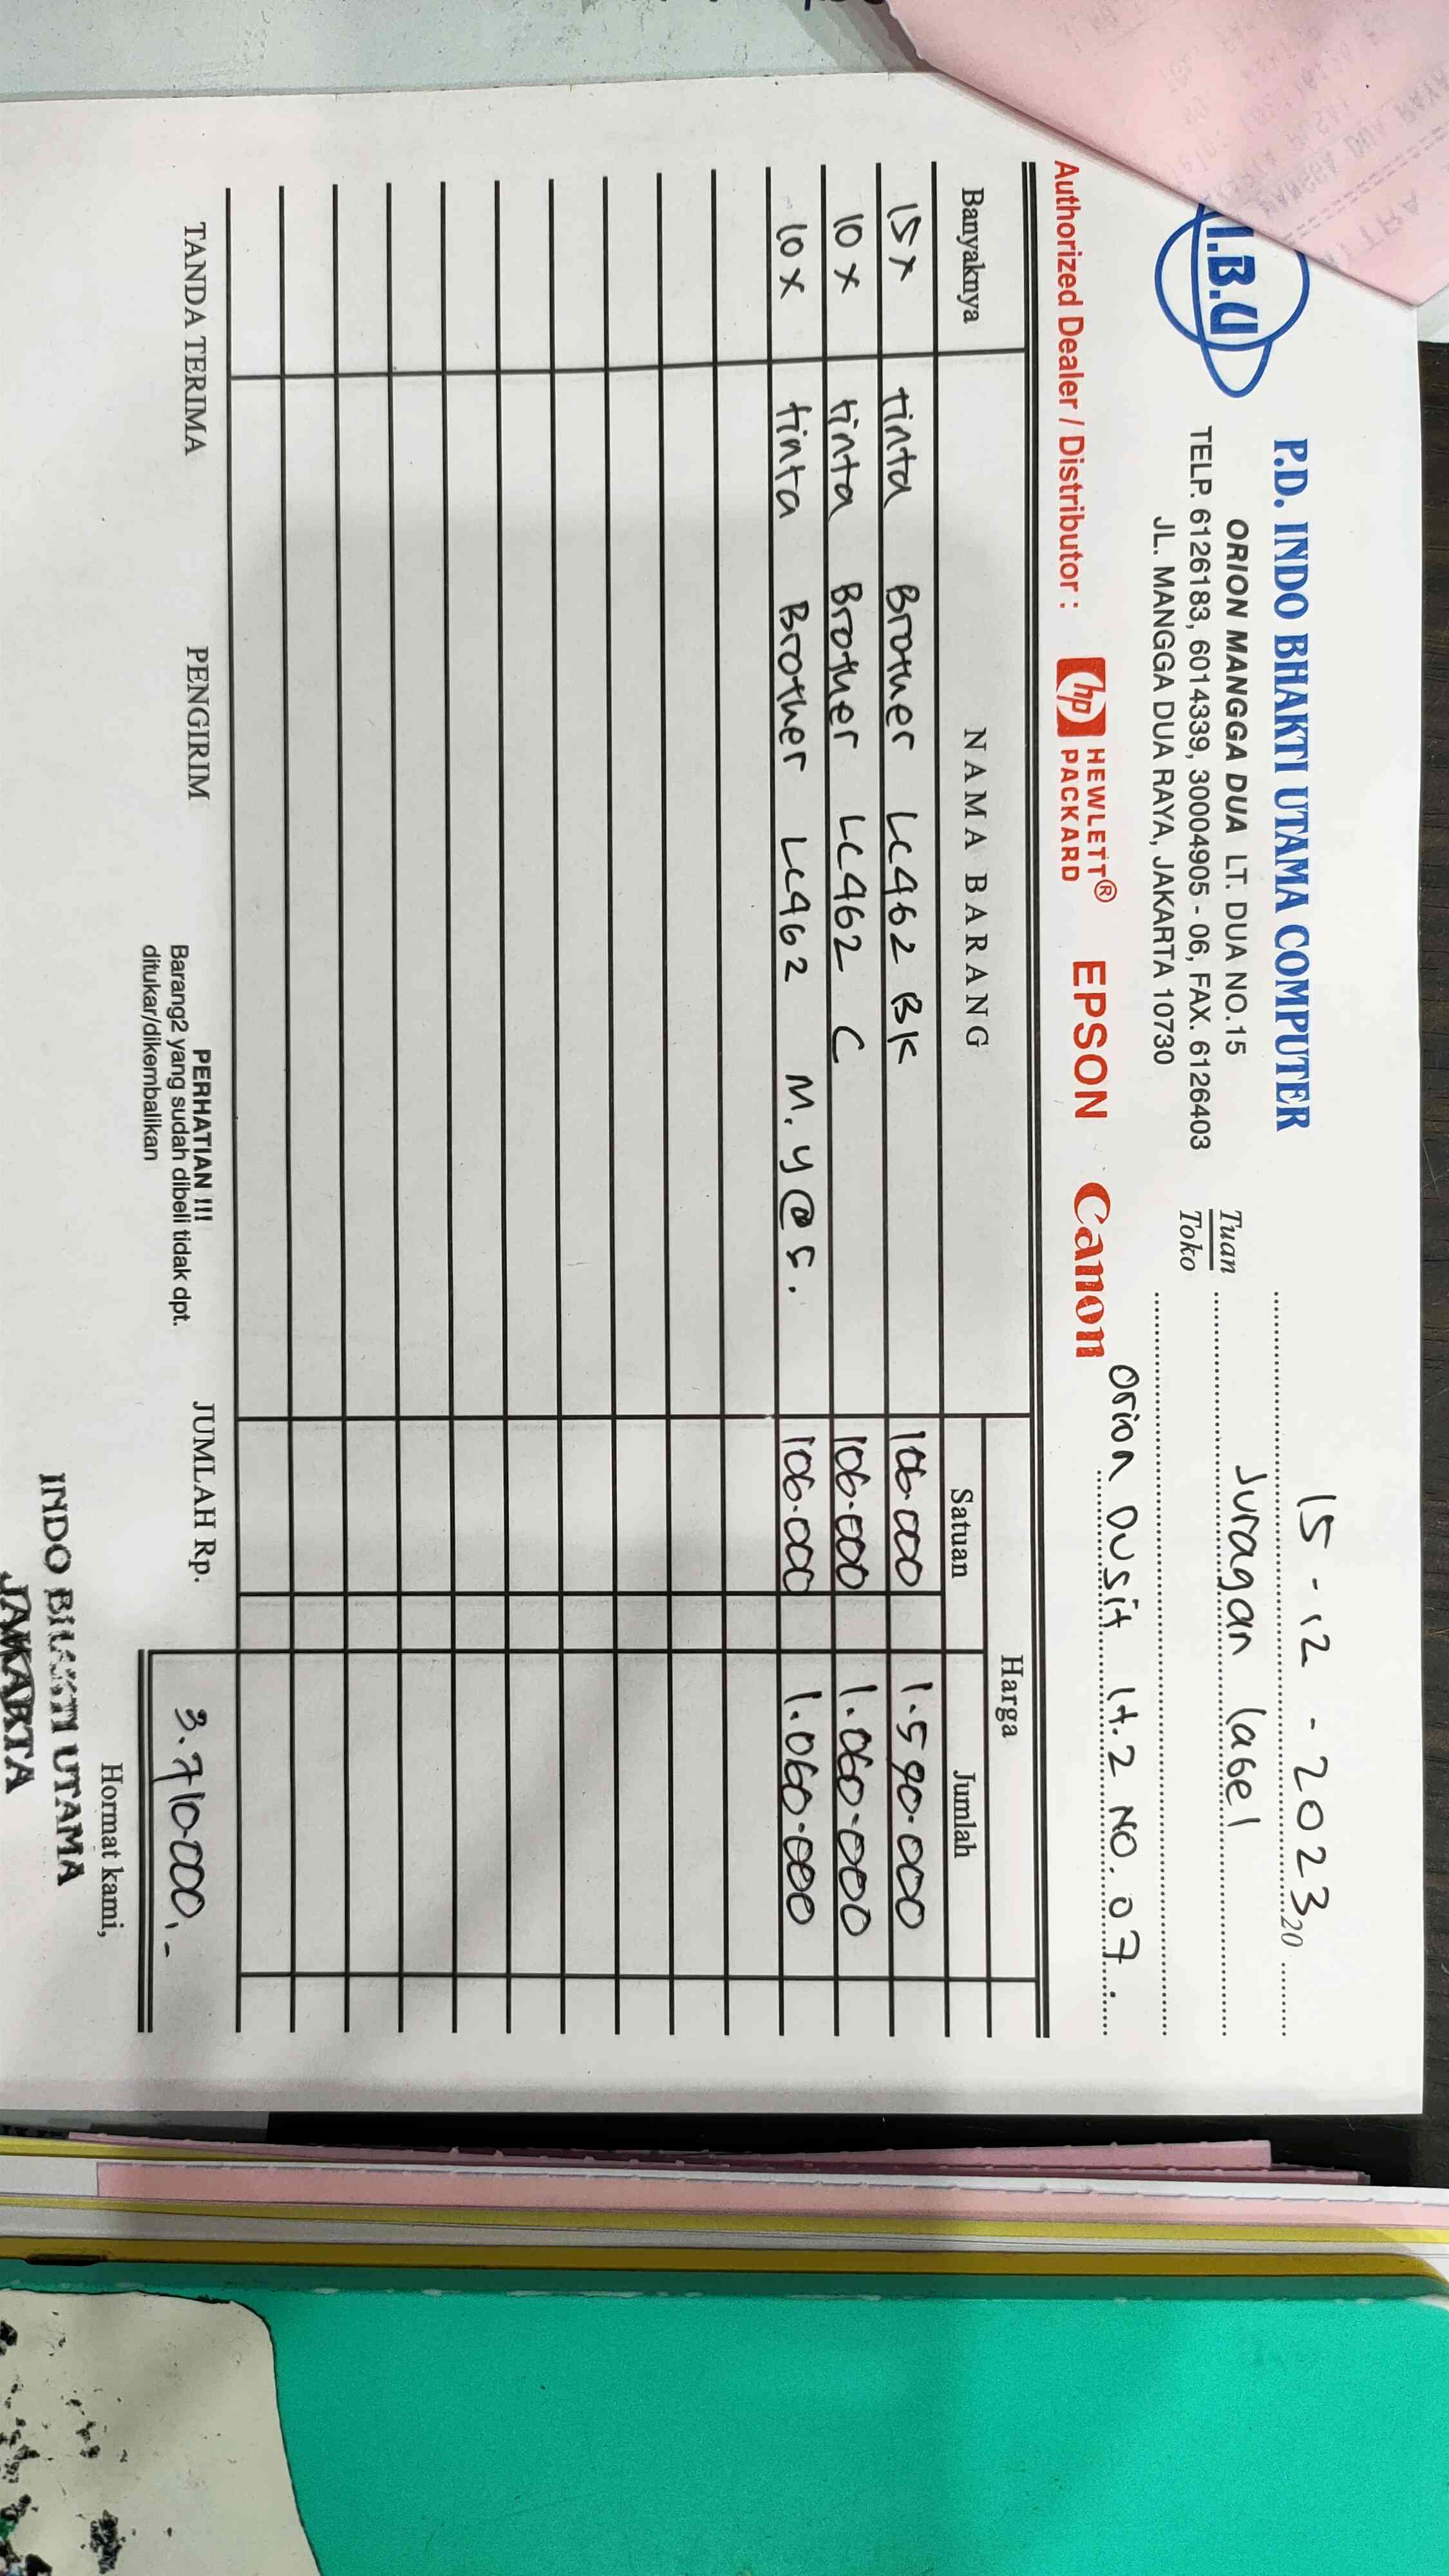 I.B.U
P.D. INDO BHAKTI UTAMA COMPUTER
ORION MANGGA DUA LT. DUA NO.15
TELP. 6126183, 6014339, 30004905 - 06, FAX. 6126403
JL. MANGGA DUA RAYA, JAKARTA 10730
Authorized Dealer / Distributor : hp HEWLETT® PACKARD EPSON Canon
15 - 12 - 2023 20
Tuan Juragan label
Toko
Orion Dusit lt.2 NO. 07.
Banyaknya NAMA BARANG Harga
Satuan Jumlah
15x tinta Brother LC462 BK 106.000 1.590.000
10x tinta Brother LC462 C 106.000 1.060.000
10x tinta Brother LC462 M.y@5. 106.000 1.060.000
TANDA TERIMA PENGIRIM JUMLAH Rp. 3.710.000,-
PERHATIAN !!!
Barang2 yang sudah dibeli tidak dpt.
ditukar/dikembalikan
Hormat kami,
INDO BHAKTI UTAMA
JAKARTA